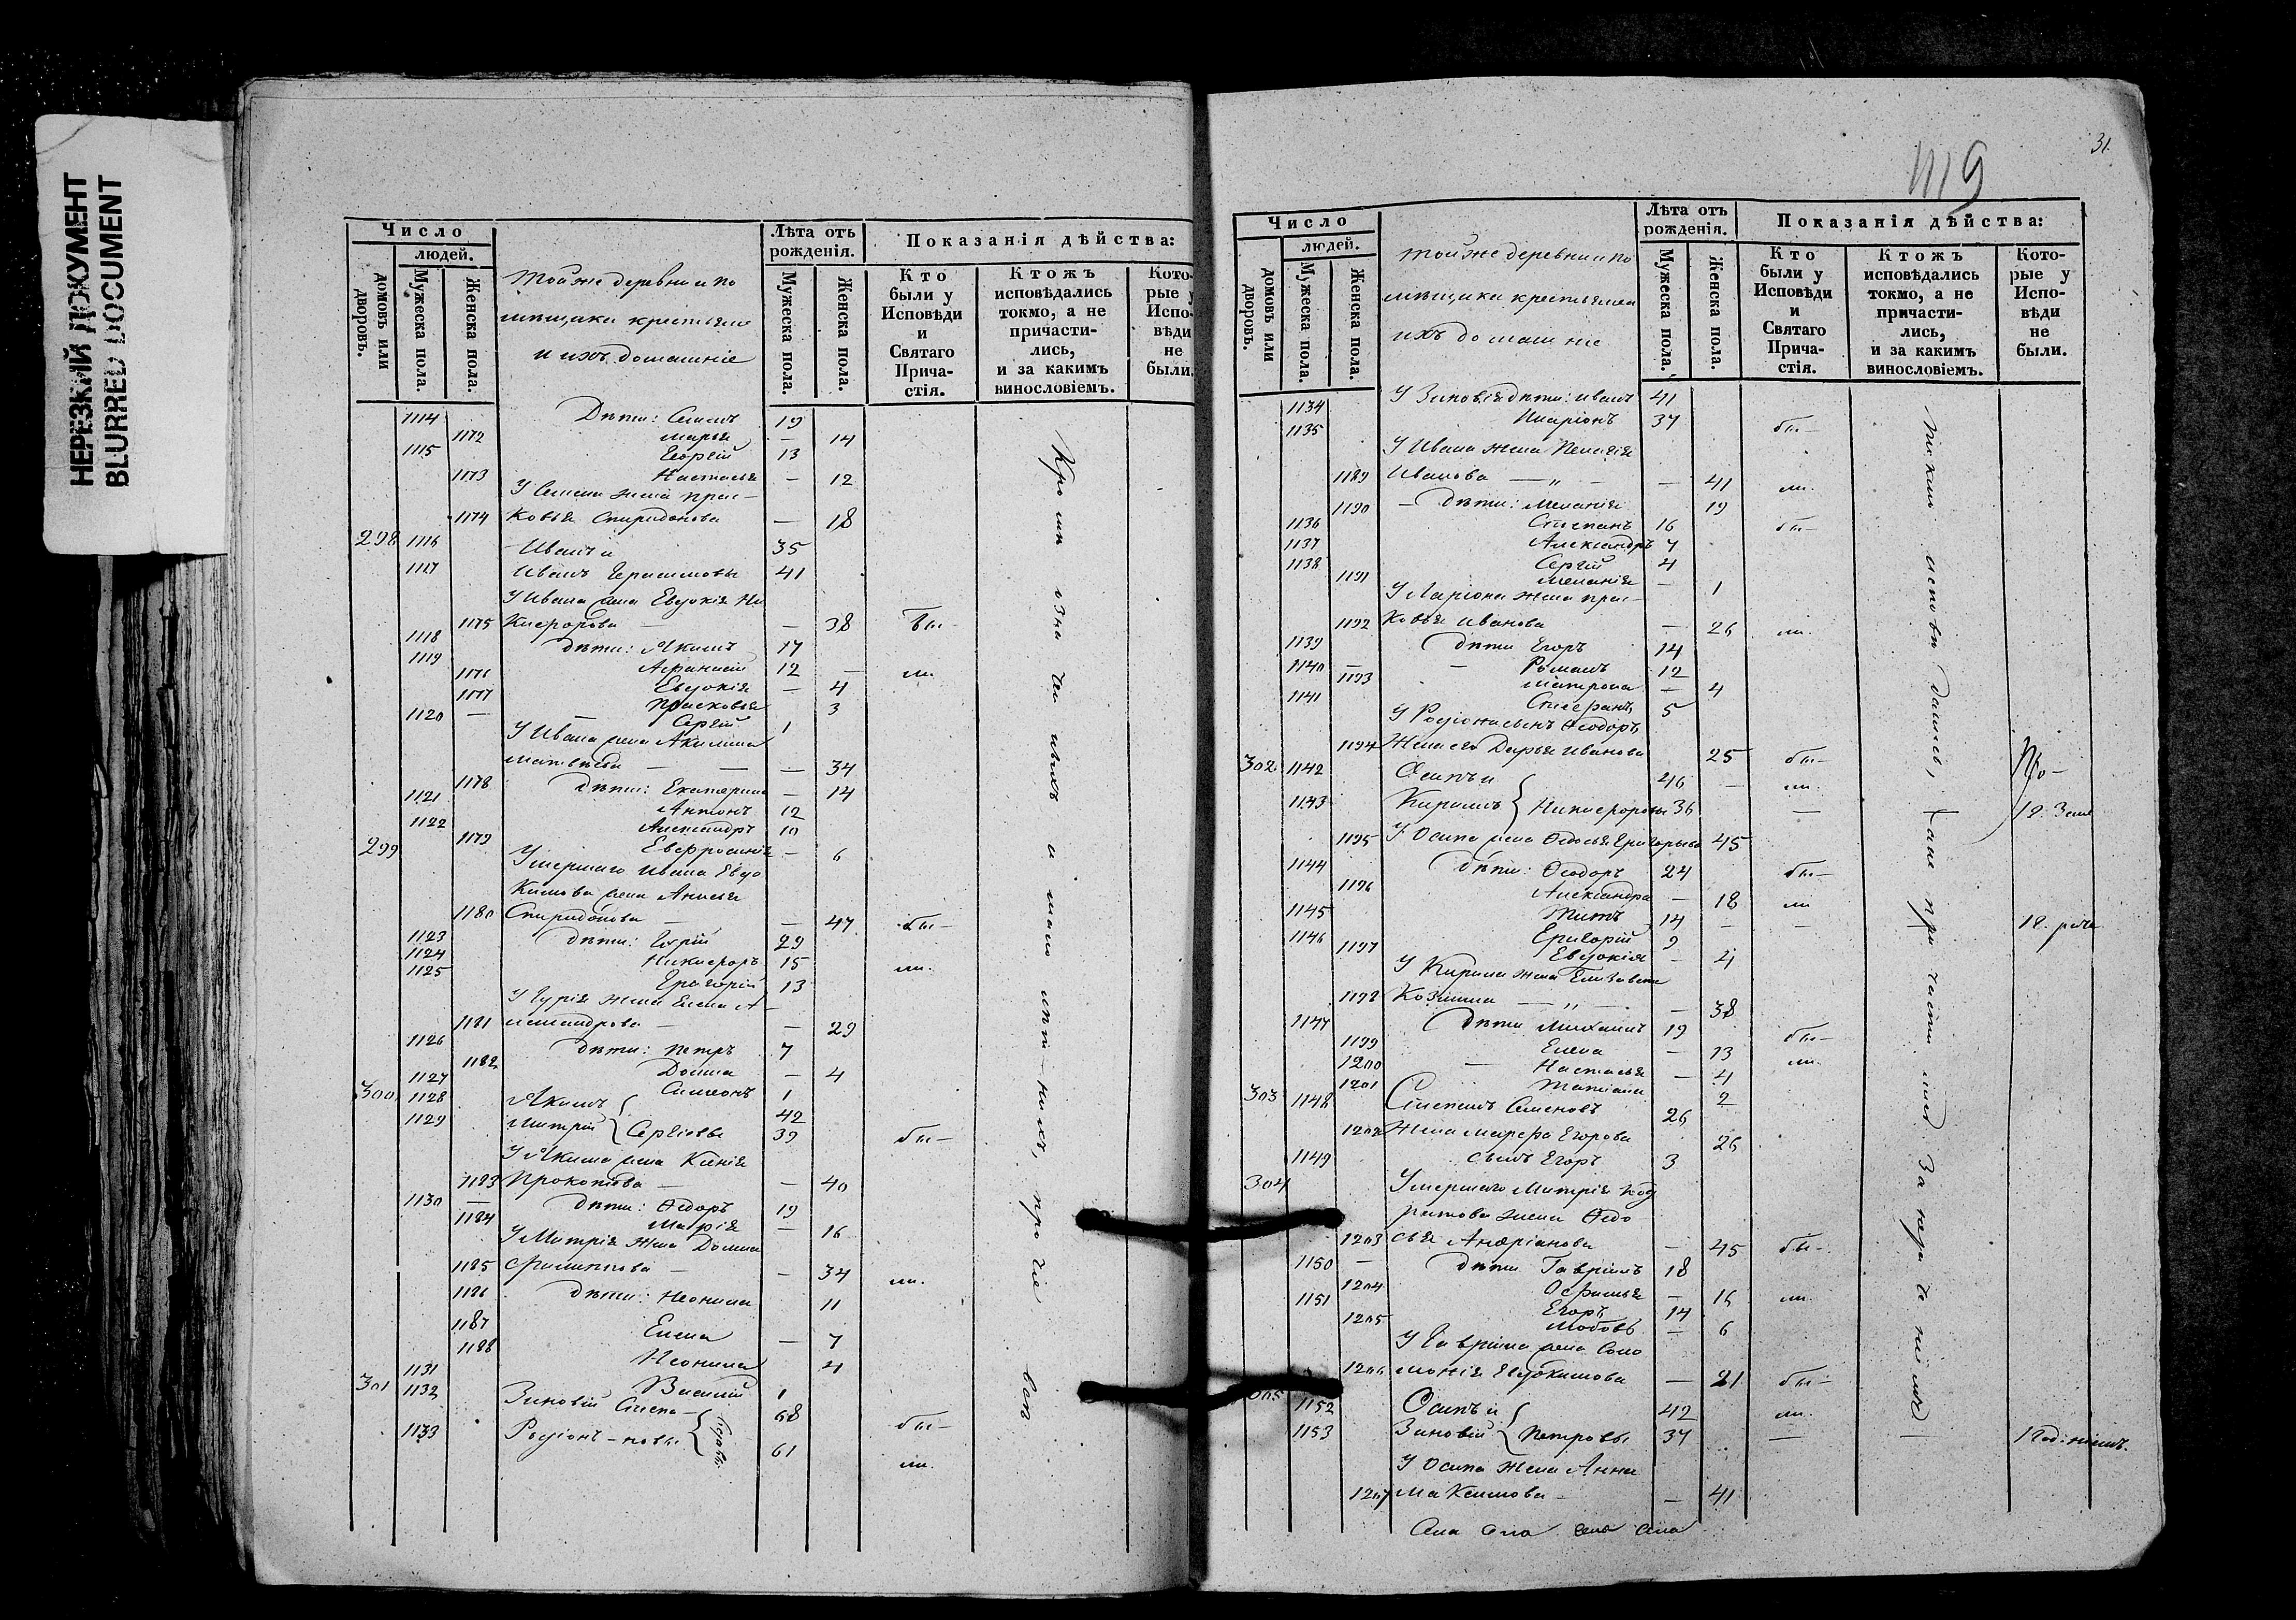 НЕРЕЗКИЙ ДОКУМЕНТ
BLURRED DOCUMENT
Число
людей.
домовъ или дворовъ.
Мужеска пола.
Женска пола.
Той же деревни и по
мѣщика крестьяне
и ихъ домашніе
Лѣта отъ рожденія.
Мужеска пола.
Женска пола.
Показанія дѣйства:
Кто были у Исповѣди и Святаго Прича-стія.
Ктожъ исповѣдались токмо, а не причасти-лись, и за какимъ винословіемъ.
Кото-рые у Испо-вѣди не были.
1114 Дѣти: 19
1172 Марья — 14
1115 Георгій 13
1173 Настасья — 12
У жена Прас-
1174 ковья Спиридонова — 18
298 1116 Иванъ и 35
1117 Иванъ 41
У Ивана жена Евдокія Ни
1175 кифорова — 38 бы-
1118 дѣти: Якимъ 17
1119 Афанасій 12 — ли.
1176 Евдокія — 4
1177 Прасковья 3
1120 — Сергій 1
У Ивана жена Акилина
Матвѣева — — — 34
1178 дѣти: Екатерина — 14
1121 Антонъ 12
1122 Александръ 10
299 1179 Евфросинія — 6
Умершаго Ивана Евдо
кимова жена Анисья
1180 Спиридонова — — 47 бы-
1123 дѣти: Гурій 29
1124 Никифоръ 15
1125 Григорій 13 ли.
У Гурія жена Елена А-
1181 лександрова — — 29
1126 дѣти: Петръ 7
1182 Домна — 4
1127 Симеонъ 1
300 1128 Якимъ 42
1129 Митрій } Сергіевы 39 бы-
У Якима жена Ксенія
1183 Прокопова — — 40
1130 — дѣти: Ѳедоръ 19
1184 Марія — 16
У Митрія жена Домна
1185 Филиппова — — 34 ли.
1186 дѣти: Неонила 11
1187 Елена — 7
1188 Неонила 4
1131 Василій 1
301 1132 Зиновій 68 бы-
1133 Родіонъ 61 ли.
31.
1119
Число
людей.
домовъ или дворовъ.
Мужеска пола.
Женска пола.
Той же деревни и по
мѣщика крестьяне и
ихъ домашніе
Лѣта отъ рожденія.
Мужеска пола.
Женска пола.
Показанія дѣйства:
Кто были у Исповѣди и Святаго Прича-стія.
Ктожъ исповѣдались токмо, а не причасти-лись, и за какимъ винословіемъ.
Кото-рые у Испо-вѣди не были.
1134 У Зиновія дѣти: Иванъ 41
1135 Иларіонъ 37 бы-
У Ивана жена Пелагія
1189 Иванова — „ — — 41 ли.
1190 — дѣти: Меланія 19
1136 Степанъ 16 бы-
1137 Александръ 7
1138 Сергій 4
1191 Меланія — 1
У Ларіона жена Прас-
1192 ковья Иванова — 26 ли.
1139 дѣти Егоръ 14
1140 — — Романъ 12
1193 Матрона — 4
1141 Стефанъ 5
У Родіона сынъ Ѳеодоръ
1194 Жена его Дарья Иванова 25 бы-
302 1142 Осипъ и 46 — ли.
1143 Кирилъ } Никифоровы 36 —
1195 У Осипа жена Ѳедосья Григорьева 45
1144 дѣти: Ѳеодоръ 24 бы-
1196 Александра — 18 ли
1145 Титъ 14 — —
1146 Григорій 9
1197 Евдокія — 4
У Кирила жена Елизавета
1198 Козьмина — „ — — 38
1147 дѣти Михаилъ 19 бы-
1199 Елена — 13 ли.
1200 — Настасья — 4
1201 Татіана 2
303 1148 Степанъ Семеновъ 26
1202 Жена Марфа Егорова 26
1149 сынъ Егоръ 3
304 Умершаго Митрія Код
ратова жена Ѳедо
1203 сья Андріанова — 45 бы-
1150 — дѣти Гавріилъ 18
1204 Офимья — 16 ли.
1151 Егоръ 14
1205 Любовь — 6
У Гавріила жена Соло
1206 монія Евдокимова — 21 бы-
305 1152 Осипъ и 42 ли.
1153 Зиновій } Петровы 37 — —
У Осипа жена Анна
1207 Максимова — — 41